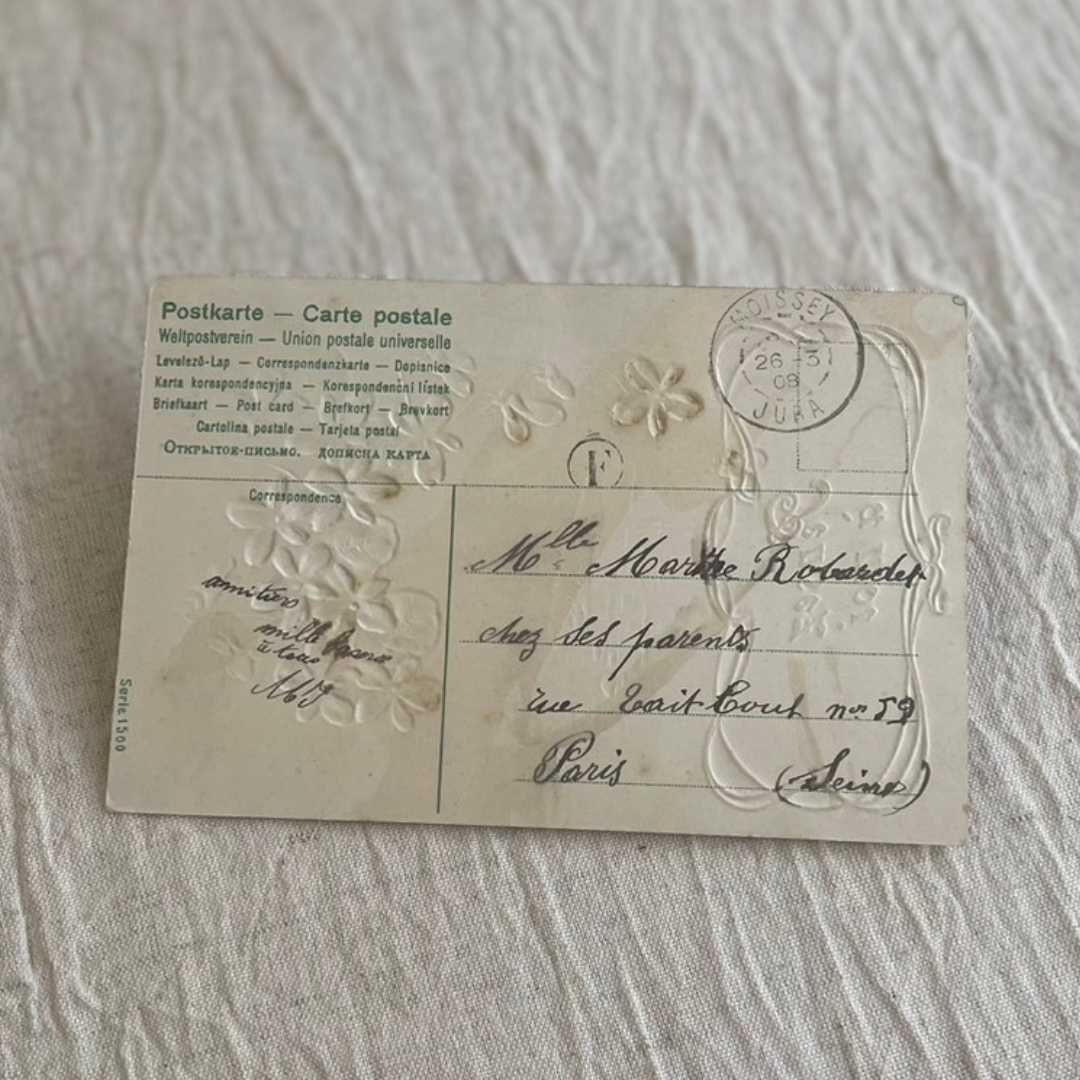 Postkarte — Carte postale
Weltpostverein — Union postale universelle
Levelező-Lap — Correspondenzkarte — Dopisnice
Karta korespondencyjna — Korespondenční lístek
Briefkaart — Post card — Brefkort — Brevkort
Cartolina postale — Tarjeta postal
Открытое-письмо. дописна карта
MOISSEY
26 - 3
08
JURA
F
Correspondence
Mlle Marthe Robardet
chez ses parents
rue Tait Bout no 59
Paris (Seine)
amitiers
mille
a tous
Serie 1500